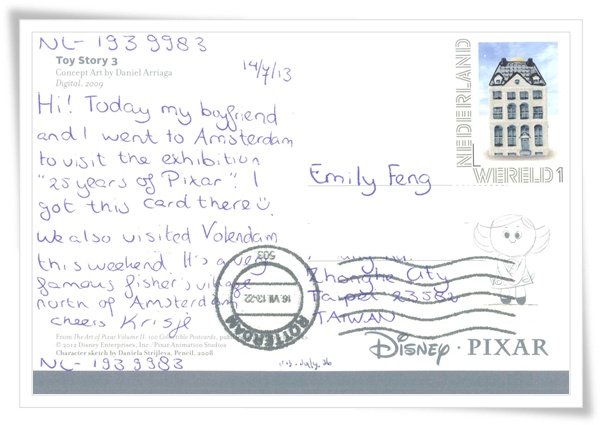 NL-1939983
Toy Story 3
Concept Art by Daniel Arriaga
Digital, 2009
14/7/13
Hi! Today my boyfriend
and I went to Amsterdam
to visit the exhibition
"25 years of Pixar". I
got this card there
We also visited Volendam
this weekend. It's a very
famous fisher's village
north of Amsterdam
cheers Krisje
From The Art of Pixar Volume II: 100 Collectible Postcards, published
© 2012 Disney Enterprises, Inc./Pixar Animation Studios
Character sketch by Daniela Strijleva, Pencil, 2008
NL-1939983
NEDERLAND
WERELD 1
Emily Feng
Zhonghe City
Taipei 23582
TAIWAN
503
16.VII.13-22
ROTTERDAM
DISNEY · PIXAR
July. 26